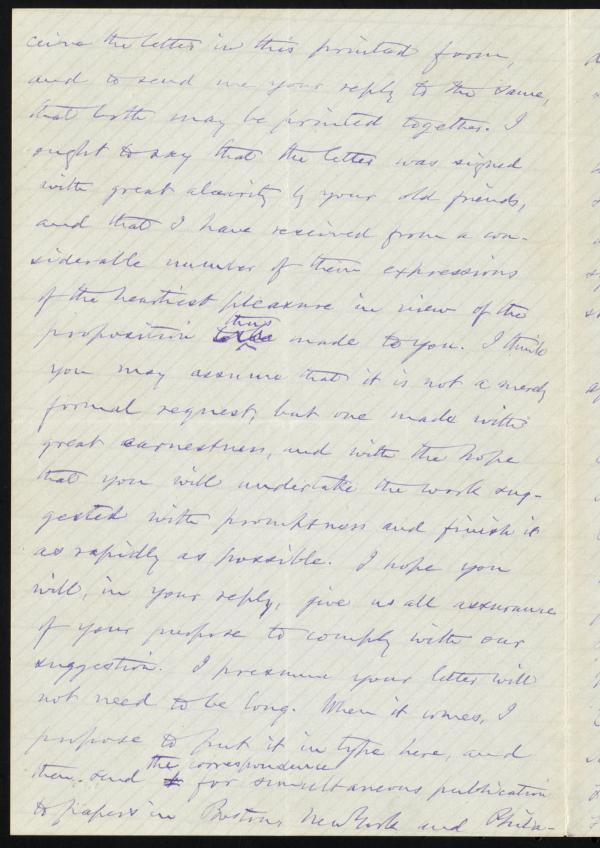 ceive the letter in this printed form,
and to send me your reply to the same,
that both may be printed together. I
ought to say that the letter was signed
with great alacrity by your old friends,
and that I have received from a con-
siderable number of them expressions
of the heartiest pleasure in view of the
proposition thus made to you. I think
you may assume that it is not a merely
formal request, but one made with
great earnestness, and with the hope
that you will undertake the work sug-
gested with promptness and finish it
as rapidly as possible. I hope you
will, in your reply, give us all assurance
of your purpose to comply with our
suggestion. I presume your letter will
not need to be long. When it comes, I
propose to put it in type here, and
then send the correspondence for simultaneous publication
to papers in Boston, New York and Phila-